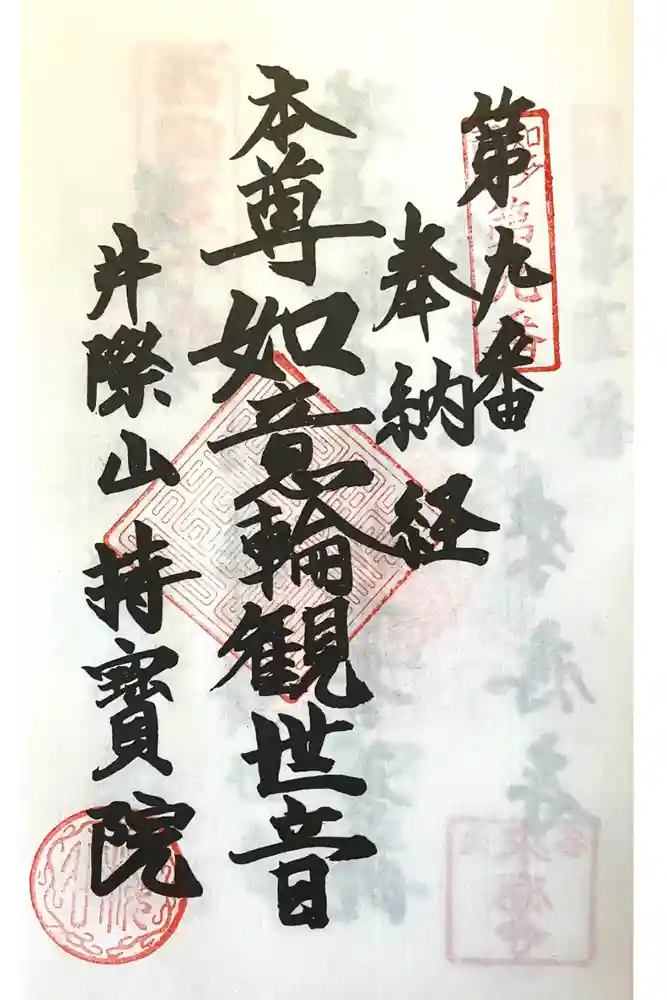 第九番
知多
第九番
奉納経
本尊如意輪観世音
井際山持寶院